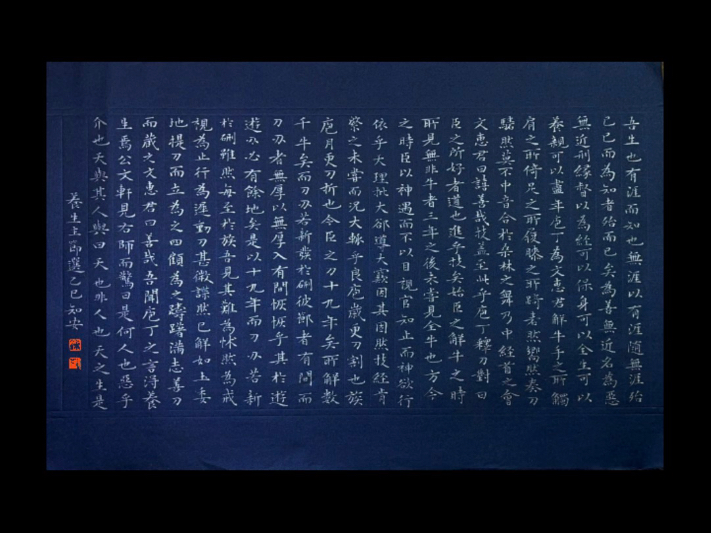 吾生也有涯而知也無涯以有涯隨無涯殆
已已而為知者殆而已矣為善無近名為惡
無近刑緣督以為經可以保身可以全生可以
養親可以盡年庖丁為文惠君解牛手之所觸
肩之所倚足之所履膝之所踦砉然嚮然奏刀
騞然莫不中音合於桑林之舞乃中經首之會
文惠君曰譆善哉技蓋至此乎庖丁釋刀對曰
臣之所好者道也進乎技矣始臣之解牛之時
所見無非牛者三年之後未嘗見全牛也方今
之時臣以神遇而不以目視官知止而神欲行
依乎天理批大郤導大窾因其固然技經肯
綮之未嘗而況大軱乎良庖歲更刀割也族
庖月更刀折也今臣之刀十九年矣所解數
千牛矣而刀刃若新發於硎彼節者有間而
刀刃者無厚以無厚入有間恢恢乎其於遊
遊刃必有餘地矣是以十九年而刀刃若新
於硎雖然每至於族吾見其難為怵然為戒
視為止行為遲動刀甚微謋然已解如土委
地提刀而立為之四顧為之躊躇滿志善刀
而藏之文惠君曰善哉吾聞庖丁之言得養
生焉公文軒見右師而驚曰是何人也惡乎
介也天與其人與曰天也非人也天之生是
養生主節選乙巳知安